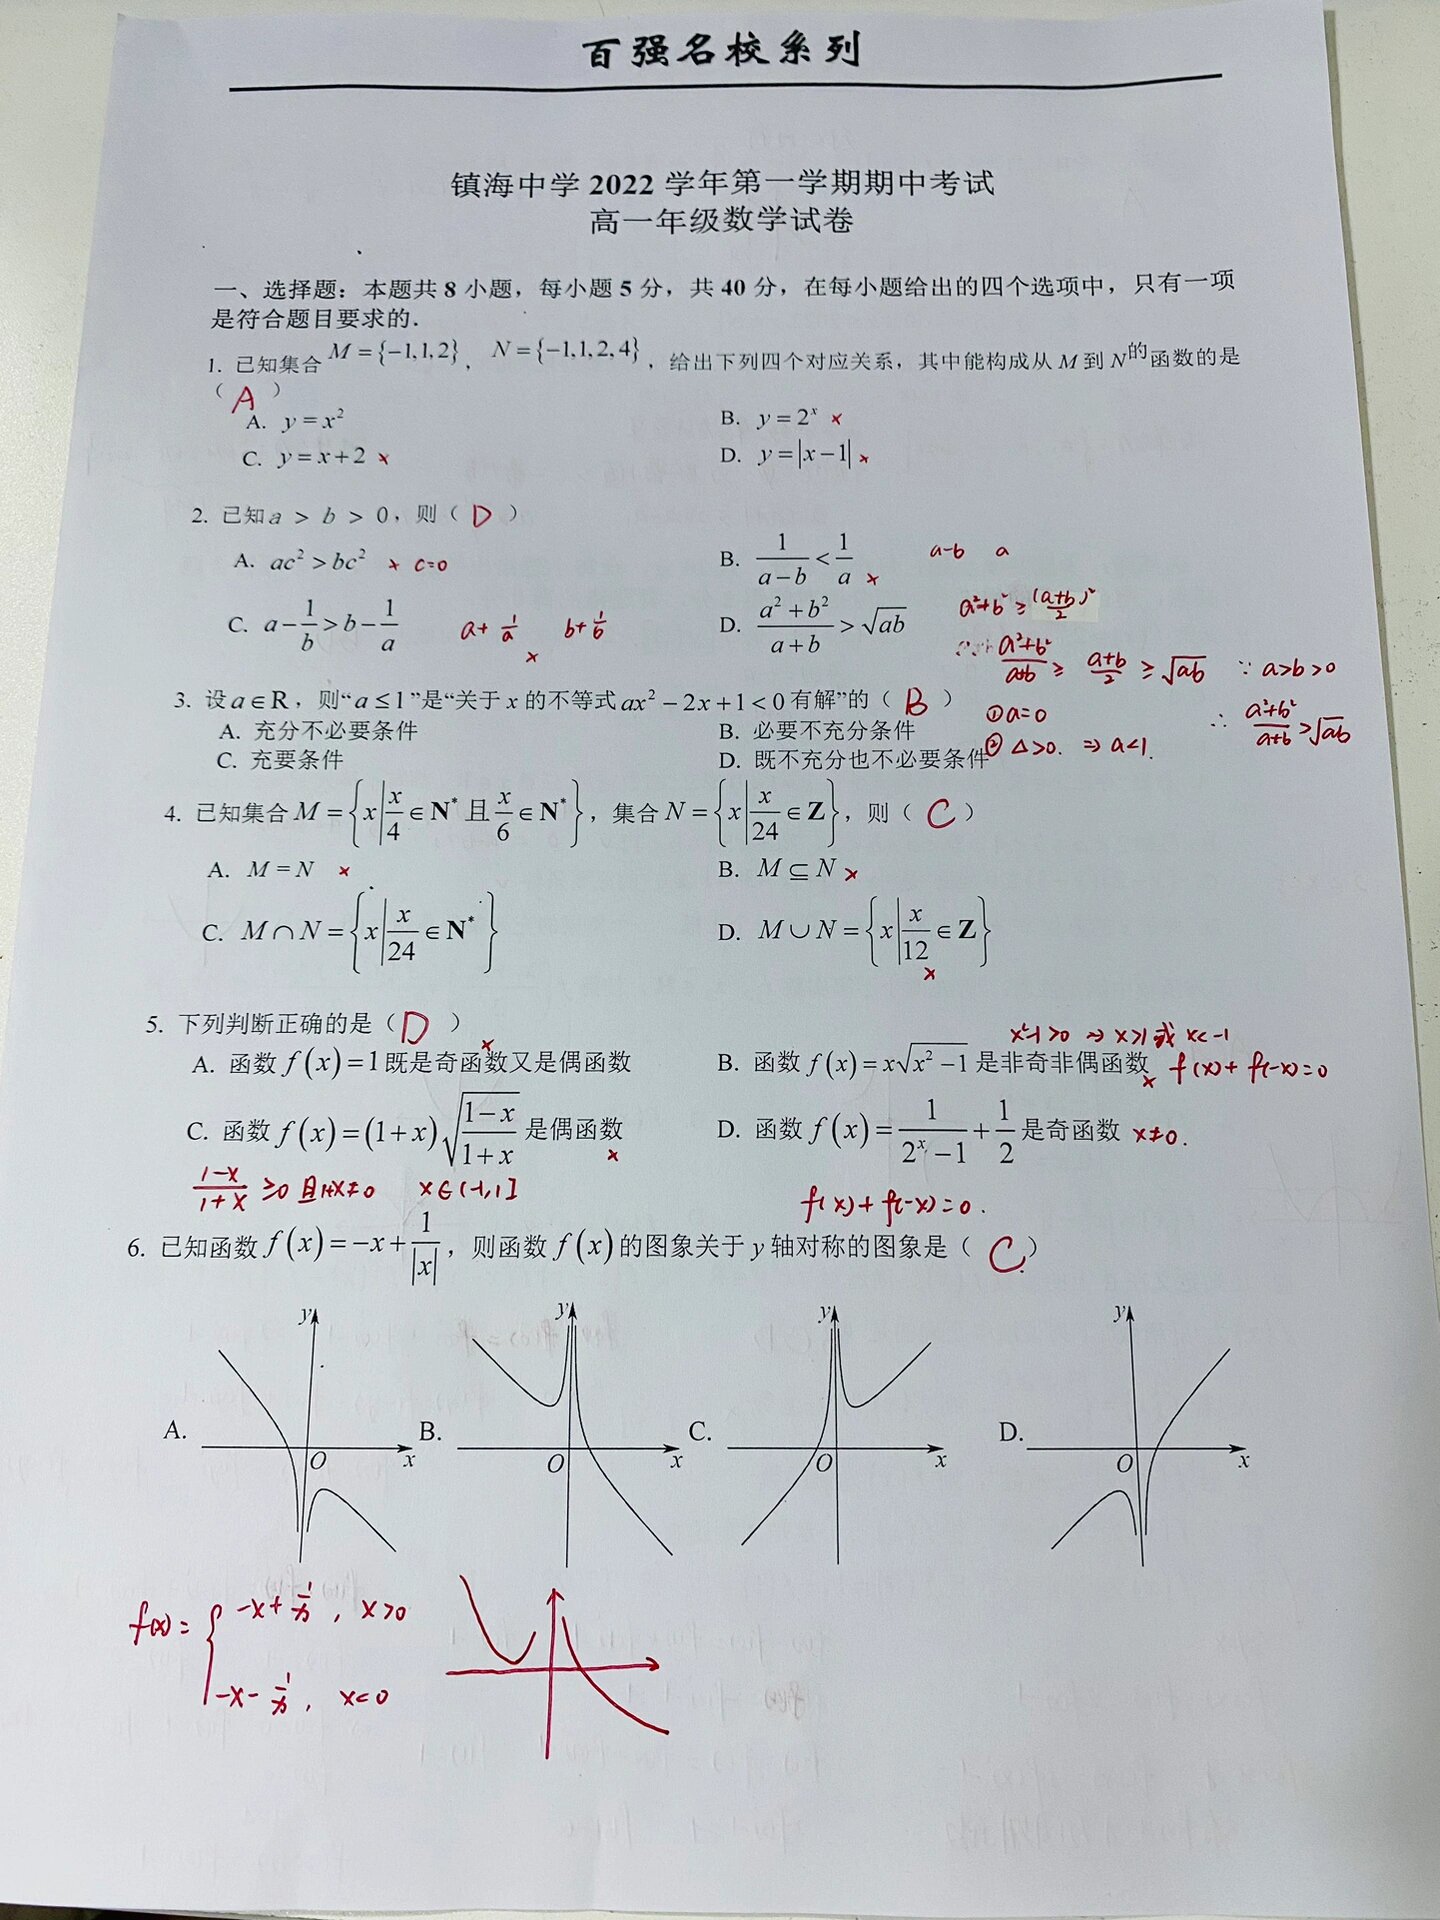 百强名校系列
镇海中学 2022 学年第一学期期中考试
高一年级数学试卷
一、选择题：本题共 8 小题，每小题 5 分，共 40 分，在每小题给出的四个选项中，只有一项
是符合题目要求的.
1. 已知集合 M={-1,1,2}，N={-1,1,2,4}，给出下列四个对应关系，其中能构成从 M 到 N 的函数的是
（ A ）
A. y=x² B. y=2ˣ ×
C. y=x+2 × D. y=|x-1| ×
2. 已知 a > b > 0，则（ D ）
A. ac²>bc² × c=0 B. 1/(a-b)<1/a × a-b a
C. a-1/b>b-1/a a+1/a b+1/b × D. (a²+b²)/(a+b)>√ab a²+b²≥(a+b)²/2
(a²+b²)/(a+b)≥(a+b)/2≥√ab ∵a>b>0
3. 设 a∈R，则“a≤1”是“关于 x 的不等式 ax²-2x+1<0 有解”的（ B ） ①a=0 ∴(a²+b²)/(a+b)>√ab
A. 充分不必要条件 B. 必要不充分条件
C. 充要条件 D. 既不充分也不必要条件 ②Δ>0. ⇒a<1.
4. 已知集合 M={x|x/4∈N* 且 x/6∈N*}，集合 N={x|x/24∈Z}，则（ C ）
A. M=N × B. M⊆N ×
C. M∩N={x|x/24∈N*} D. M∪N={x|x/12∈Z} ×
5. 下列判断正确的是（ D ） x²-1>0 ⇒x>1或x<-1
A. 函数 f(x)=1 既是奇函数又是偶函数 × B. 函数 f(x)=x√(x²-1) 是非奇非偶函数 × f(x)+f(-x)=0
C. 函数 f(x)=(1+x)√((1-x)/(1+x)) 是偶函数 × D. 函数 f(x)=1/(2ˣ-1)+1/2 是奇函数 x≠0.
(1-x)/(1+x)≥0且1+x≠0 x∈(-1,1] f(x)+f(-x)=0.
6. 已知函数 f(x)=-x+1/|x|，则函数 f(x) 的图象关于 y 轴对称的图象是（ C ）
y y y y
A. B. C. D.
O x O x O x O x
f(x)={ -x+1/x, x>0
-x-1/x, x<0